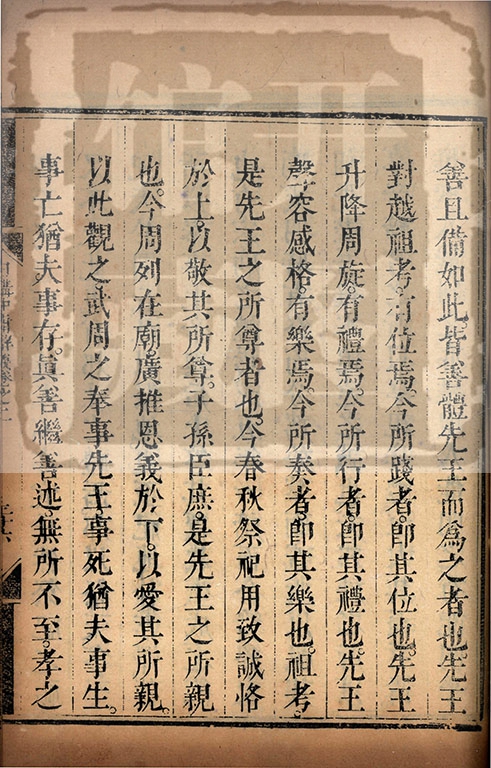 善且備如此。皆善體先王而爲之者也。先王
對越祖考。有位焉。今所踐者。卽其位也。先王
升降周旋。有禮焉。今所行者。卽其禮也。先王
聲容感格。有樂焉。今所奏者。卽其樂也。祖考。
是先王之所尊者也。今春秋祭祀用致誠恪
於上。以敬其所尊。子孫臣庶。是先王之所親
也。今周列在廟。廣推恩義於下。以愛其所親。
以此觀之武周之奉事先王。事死猶夫事生。
事亡猶夫事存。眞善繼善述。無所不至。孝之